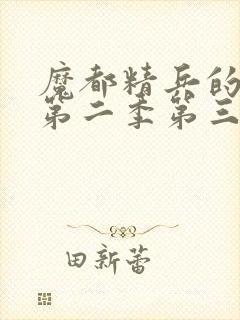 魔都精兵的
第二季第三
田新蕾